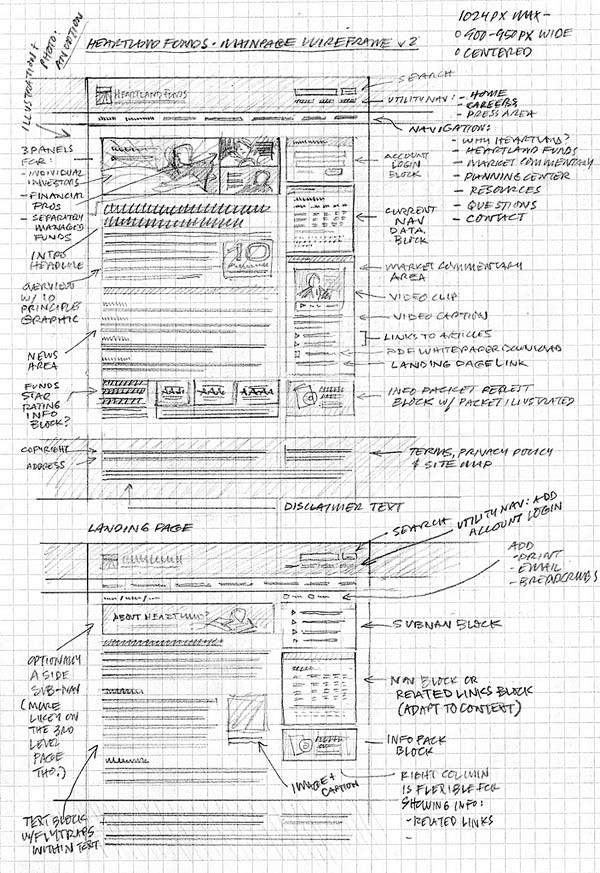 HEARTLAND FUNDS • MAINPAGE WIREFRAME v2
1024PX MAX–
900-950PX WIDE
CENTERED
ILLUSTRATION +
PHOTO:
AN OPTION
HEARTLAND FUNDS
SEARCH
UTILITY NAV:
- HOME
- CAREERS
- PRESS AREA
NAVIGATION:
- WHY HEARTLAND?
- HEARTLAND FUNDS
- MARKET COMMENTARY
- PLANNING CENTER
- RESOURCES
- QUESTIONS
- CONTACT
3 PANELS
FOR:
- INDIVIDUAL
INVESTORS
- FINANCIAL
PROS
- SEPARATELY
MANAGED
FUNDS
INTRO
HEADLINE
OVERVIEW
W/ 10
PRINCIPLE
GRAPHIC
10
NEWS
AREA
FUNDS
STAR
RATING
INFO
BLOCK?
COPYRIGHT
ADDRESS
ACCOUNT
LOGIN
BLOCK
CURRENT
NAV
DATA
BLOCK
MARKET COMMENTARY
AREA
VIDEO CLIP
VIDEO CAPTION
LINKS TO ARTICLES
PDF WHITEPAPER DOWNLOAD
LANDING PAGE LINK
INFO PACKET REQUEST
BLOCK W/ PACKET ILLUSTRATED
TERMS, PRIVACY POLICY
& SITE MAP
DISCLAIMER TEXT
LANDING PAGE
SEARCH
UTILITY NAV: ADD
ACCOUNT LOGIN
ADD
- PRINT
- EMAIL
- BREADCRUMBS
ABOUT HEARTLAND?
OPTIONALLY
A SIDE
SUB-NAV
(MORE
LIKELY ON
THE 3RD
LEVEL
PAGE
THO.)
SUBNAV BLOCK
NAV BLOCK OR
RELATED LINKS BLOCK
(ADAPT TO CONTEXT)
INFO PACK
BLOCK
IMAGE +
CAPTION
RIGHT COLUMN
IS FLEXIBLE FOR
SHOWING INFO:
- RELATED LINKS
-
TEXT BLOCK
W/ FLYTRAPS
WITHIN TEXT